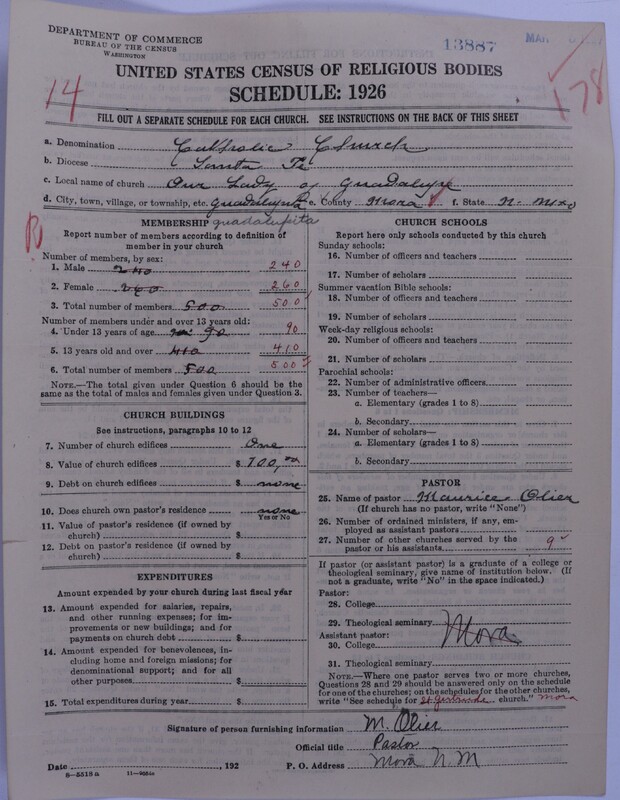 DEPARTMENT OF COMMERCE
BUREAU OF THE CENSUS
WASHINGTON
13887
MAR
UNITED STATES CENSUS OF RELIGIOUS BODIES
SCHEDULE: 1926
14
178
FILL OUT A SEPARATE SCHEDULE FOR EACH CHURCH. SEE INSTRUCTIONS ON THE BACK OF THIS SHEET
a. Denomination Catholic Church
b. Diocese Santa Fe
c. Local name of church Our Lady of Guadalupe
d. City, town, village, or township, etc. Guadalupita e. County Mora f. State N. Mexo
guadalupita
MEMBERSHIP
Report number of members according to definition of
member in your church
Number of members, by sex:
1. Male 240 240
2. Female 260 260
3. Total number of members 500 500
Number of members under and over 13 years old:
4. Under 13 years of age 90 90
5. 13 years old and over 410 410
6. Total number of members 500 500
NOTE.—The total given under Question 6 should be the
same as the total of males and females given under Question 3.
CHURCH BUILDINGS
See instructions, paragraphs 10 to 12
7. Number of church edifices One
8. Value of church edifices $ 700,00
9. Debt on church edifices $ none
10. Does church own pastor's residence none
Yes or No
11. Value of pastor's residence (if owned by
church) $
12. Debt on pastor's residence (if owned by
church) $
EXPENDITURES
Amount expended by your church during last fiscal year
13. Amount expended for salaries, repairs,
and other running expenses; for im-
provements or new buildings; and for
payments on church debt $
14. Amount expended for benevolences, in-
cluding home and foreign missions; for
denominational support; and for all
other purposes $
15. Total expenditures during year $
CHURCH SCHOOLS
Report here only schools conducted by this church
Sunday schools:
16. Number of officers and teachers
17. Number of scholars
Summer vacation Bible schools:
18. Number of officers and teachers
19. Number of scholars
Week-day religious schools:
20. Number of officers and teachers
21. Number of scholars
Parochial schools:
22. Number of administrative officers
23. Number of teachers—
a. Elementary (grades 1 to 8)
b. Secondary
24. Number of scholars—
a. Elementary (grades 1 to 8)
b. Secondary
PASTOR
25. Name of pastor Maurice Olier
(If church has no pastor, write "None")
26. Number of ordained ministers, if any, em-
ployed as assistant pastors
27. Number of other churches served by the
pastor or his assistants 9
If pastor (or assistant pastor) is a graduate of a college or
theological seminary, give name of institution below. (If
not a graduate, write "No" in the space indicated.)
Pastor:
28. College
29. Theological seminary
Assistant pastor:
30. College
Mora
31. Theological seminary
NOTE.—Where one pastor serves two or more churches,
Questions 28 and 29 should be answered only on the schedule
for one of the churches; on the schedules for the other churches,
write "See schedule for St. Gertrude church." Mora
Signature of person furnishing information M. Olier
Official title Pastor
Date , 192 P. O. Address Mora N M
8—5518 a 11—9551c